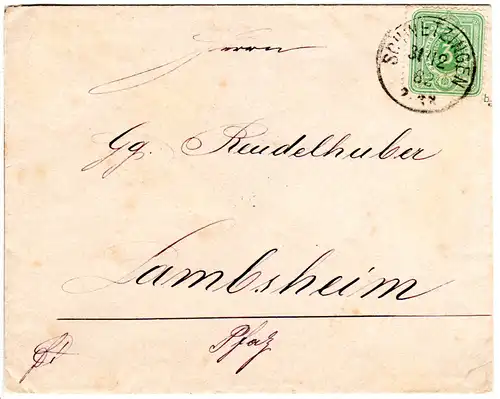 SCHWETZINGEN
31 12
82
Herrn
Gg. Rendelhuber
Lambsheim
Pfalz